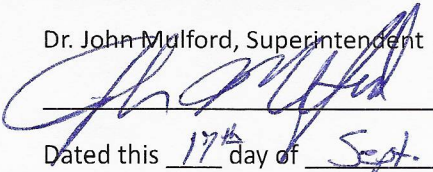 Dr. John Mulford, Superintendent
Dated this 17th day of Sept.